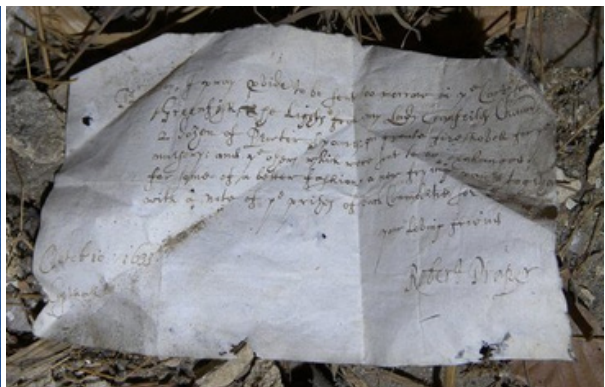 pray pvide to be sent too morrow in ye Cart some
Greenfish, The Lights from my Lady Cranfeilds Cham
2 dozen of Pewter spoons: greate fireshovell for ye
nursery; and ye others which were sent to be exchanged
for some of a better fashion, a new frying pan together
with a note of ye prises of such Commoditie for
your loving friend
Robert Draper
Octobre 1633
Copthall